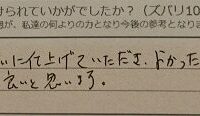 られていかがでしたか？（ズバリ10
が、私達の何よりの力となり今後の参考となりま
いに仕上げていただき、よかった
良いと思います。